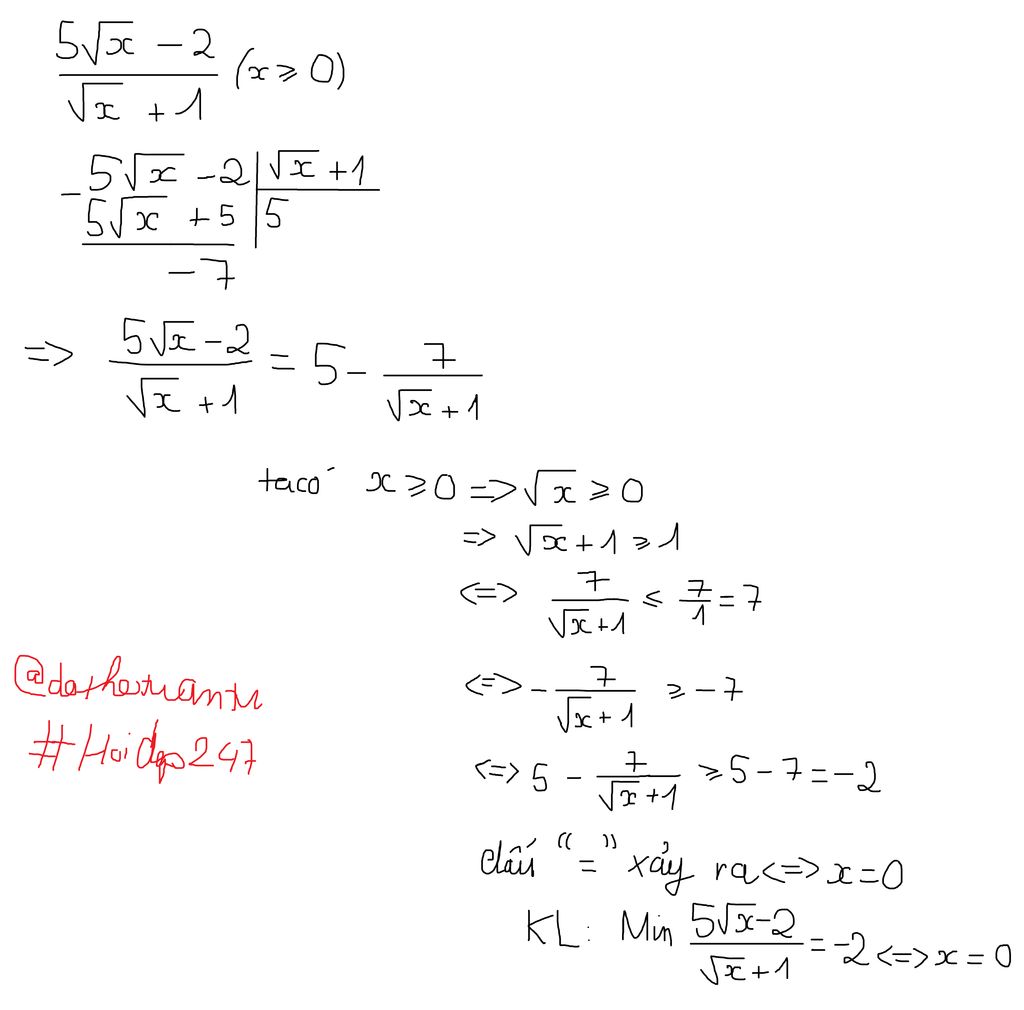 (5√x − 2)/(√x + 1) (x ⩾ 0)
−5√x − 2 | √x + 1
5√x + 5 | 5
−7
=> (5√x − 2)/(√x + 1) = 5 − 7/(√x + 1)
ta có x ⩾ 0 => √x ⩾ 0
=> √x + 1 ⩾ 1
<=> 7/(√x + 1) ⩽ 7/1 = 7
<=> −7/(√x + 1) ⩾ −7
<=> 5 − 7/(√x + 1) ⩾ 5 − 7 = −2
dấu “=” xảy ra <=> x = 0
KL: Min (5√x − 2)/(√x + 1) = −2 <=> x = 0
#Hoidap247